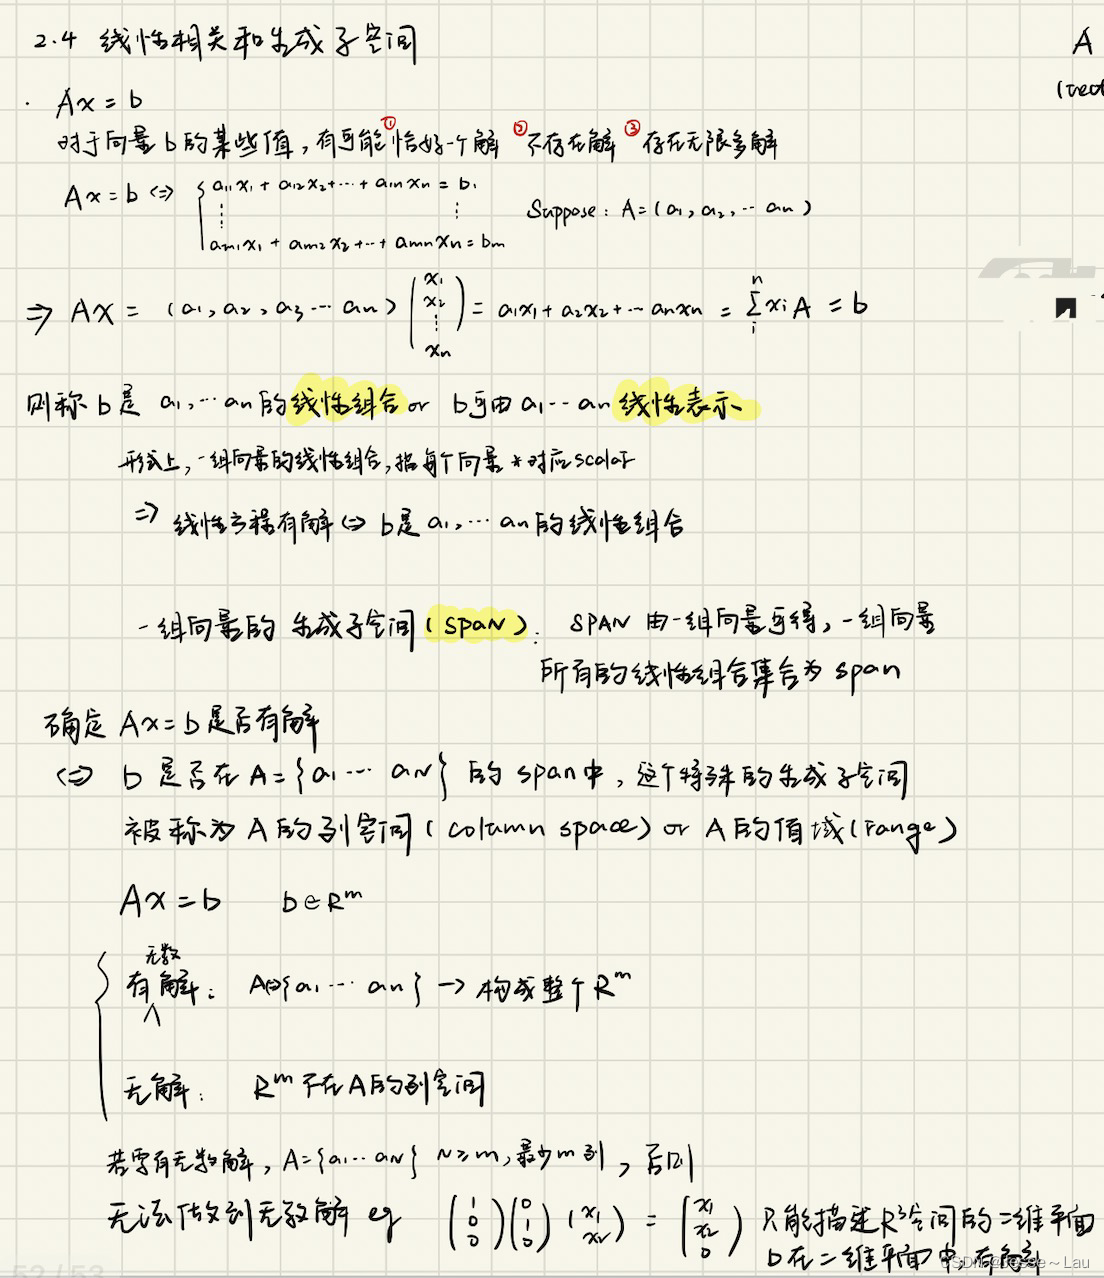 2.4 线性相关和生成子空间
A
· Ax = b
(vect
对于向量b的某些值，有可能①恰好一个解 ②不存在解 ③存在无限多解
Ax = b ⇔ { a₁₁x₁ + a₁₂x₂ + ⋯ + a₁ₙxₙ = b₁
⋮ ⋮
aₘ₁x₁ + aₘ₂x₂ + ⋯ + aₘₙxₙ = bₘ
Suppose: A = (a₁, a₂, ⋯ aₙ)
⇒ AX = (a₁, a₂, a₃ ⋯ aₙ) (x₁ x₂ ⋮ xₙ) = a₁x₁ + a₂x₂ + ⋯ aₙxₙ = ∑ᵢⁿ xᵢ A = b
则称 b是 a₁, ⋯ aₙ的线性组合 or b可由 a₁ ⋯ aₙ 线性表示
形式上，一组向量的线性组合，指每个向量 * 对应scalar
⇒ 线性方程有解 ⇔ b是 a₁, ⋯ aₙ的线性组合
一组向量的 生成子空间 (SPAN): SPAN 由一组向量可得，一组向量
所有的线性组合集合为 span
确定 Ax = b 是否有解
⇔ b 是否在 A = {a₁ ⋯ aN} 的 span中，这个特殊的生成子空间
被称为 A的列空间 (column space) or A的值域 (range)
Ax = b b ∈ Rᵐ
无数
有解: A⇔{a₁ ⋯ aₙ} → 构成整个 Rᵐ
无解: Rᵐ 不在A的列空间
若要有无数解，A = {a₁ ⋯ aN} N ≥ m, 最少m列，否则
无法做到无数解 eg (1 0 0)(0 1 0)(x₁ x₂) = (x₁ x₂ 0) 只能描述R³空间的二维平面
b在二维平面中，有解
52 / 53
CSDN @Jesse～Lau